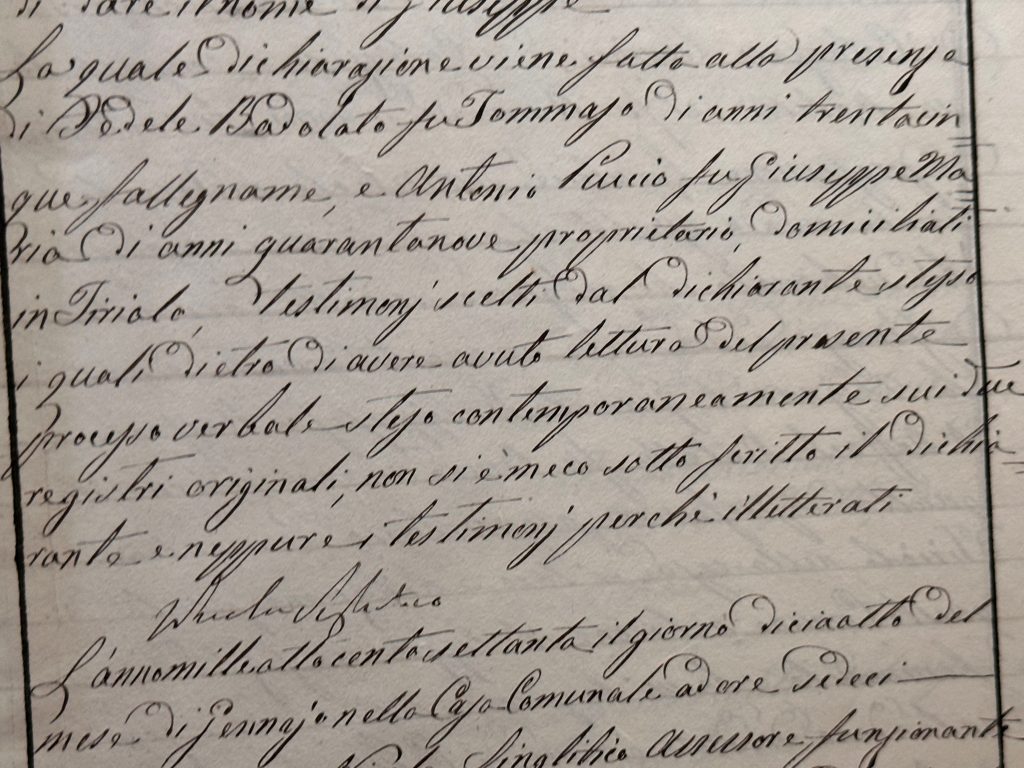 di dare il nome di Giuseppe
La quale dichiarazione viene fatta alla presenza
di Fedele Badolato fu Tommaso di anni trentacin
que fallegname, e Antonio Puccio fu Giuseppe Ma
ria di anni quarantanove proprietario, domiciliati
in Tiriolo, testimonj scelti dal dichiarante stesso
i quali dietro di avere avuto lettura del presente
processo verbale steso contemporaneamente sui due
registri originali, non si è meco sotto scritto il dichia
rante e neppure i testimonj perchè illetterati
L'anno mille otto cento settanta il giorno diciaotto del
mese di Gennajo nella Casa Comunale ad ore sedeci
Assessore funzionante